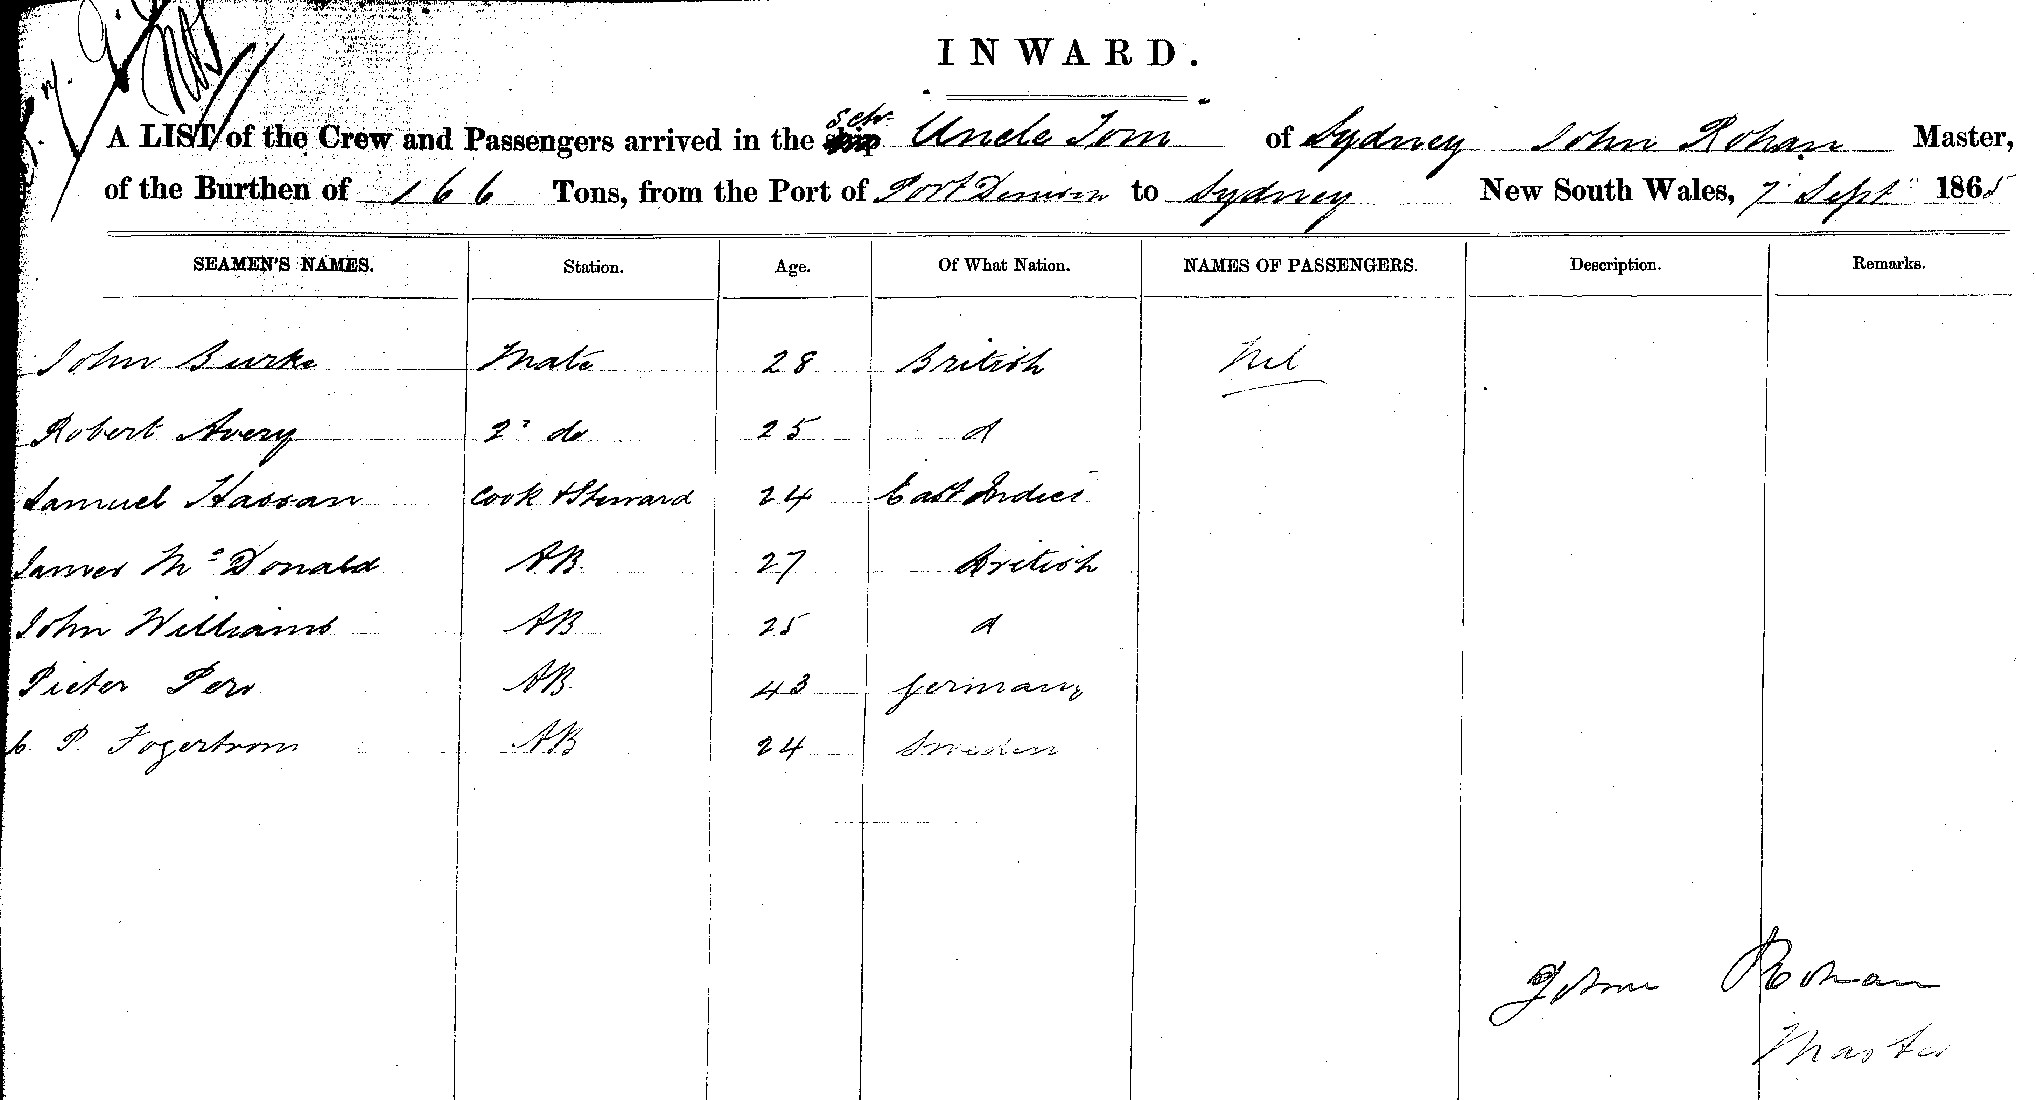 INWARD.
A LIST of the Crew and Passengers arrived in the Schr Uncle Tom of Sydney John Rohan Master,
of the Burthen of 166 Tons, from the Port of Port Denison to Sydney New South Wales, 7 Sept 1865
SEAMEN'S NAMES. Station. Age. Of What Nation. NAMES OF PASSENGERS. Description. Remarks.
John Burke Mate 28 British Nil
Robert Avery 2d do 25 d
Samuel Hassan Cook & Steward 24 East Indies
James McDonald AB 27 British
John Williams AB 25 d
Pieter Pers AB 43 Germany
C. P. Fogertrom AB 24 Sweden
John Rohan
Master